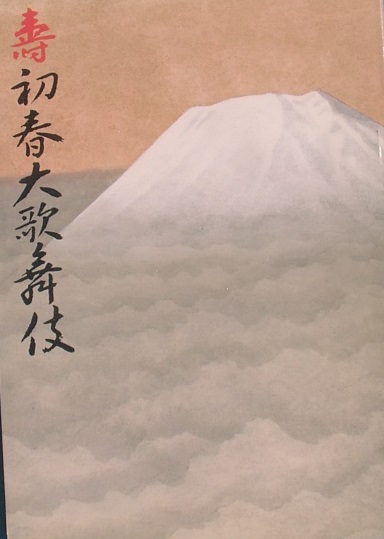 壽初春大歌舞伎